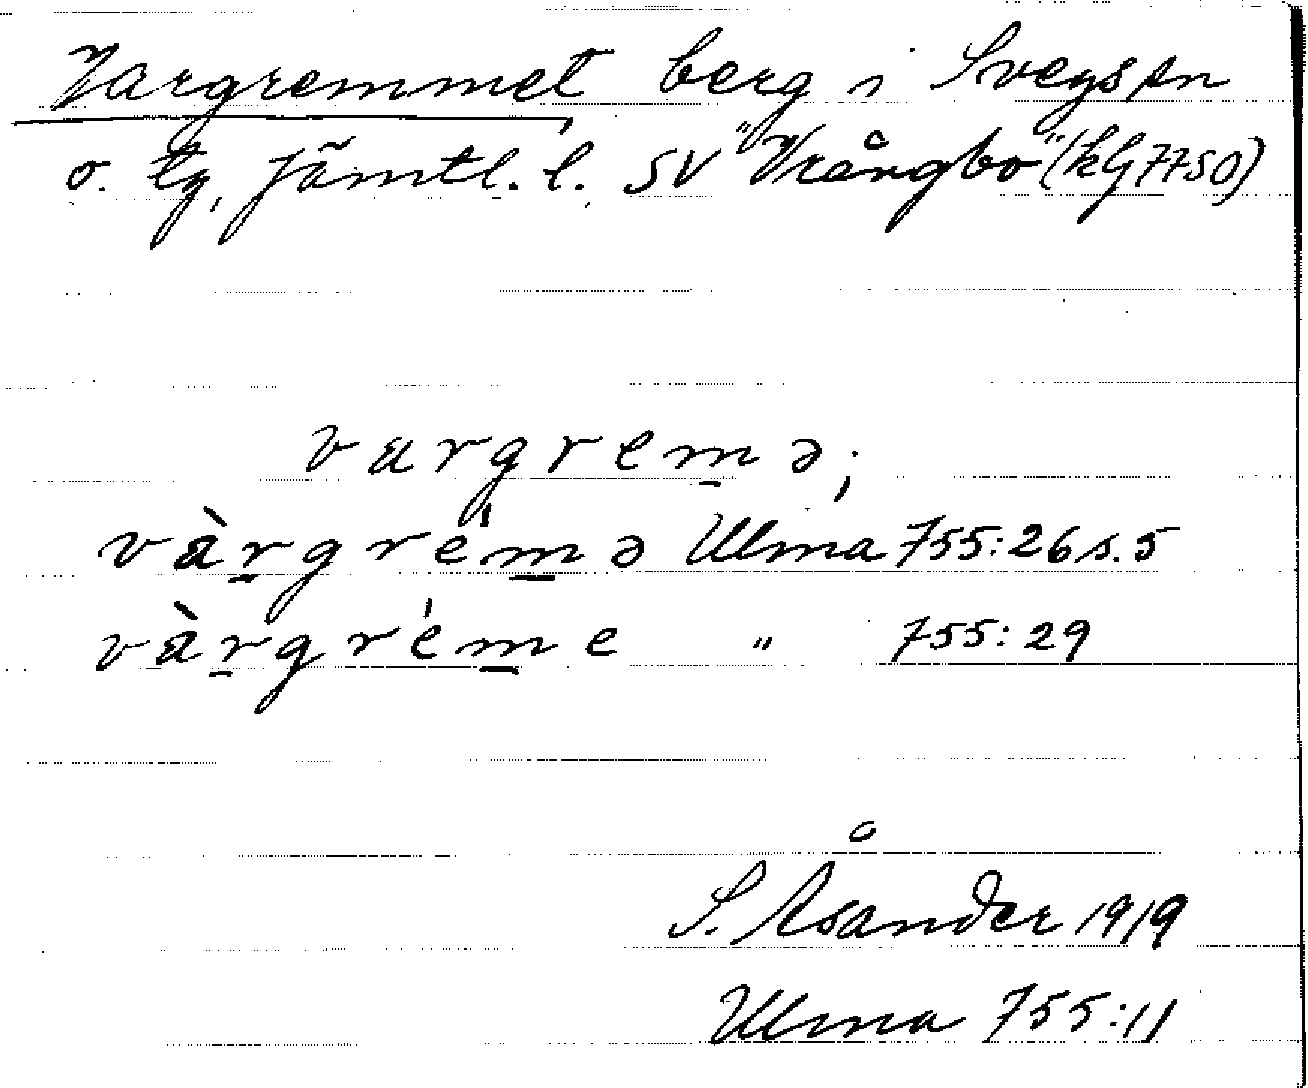 Vargremmet berg i Svegs sn
o. tg, Jämtl. l. SV "Vrångbo" (kG7750)
vargremə;
vàrgrémə Ulma 755:26 s. 5
vàrgréme " 755:29
S. Åsander 1919
Ulma 755:11